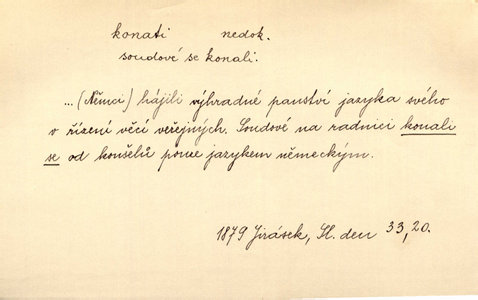 konati nedok.
soudové se konali.
...(Němci) hájili výhradné panství jazyka svého
v řízení věcí veřejných. Soudové na radnici konali
se od konšelů pouze jazykem německým.
1879 Jirásek, Sl. den 33,20.